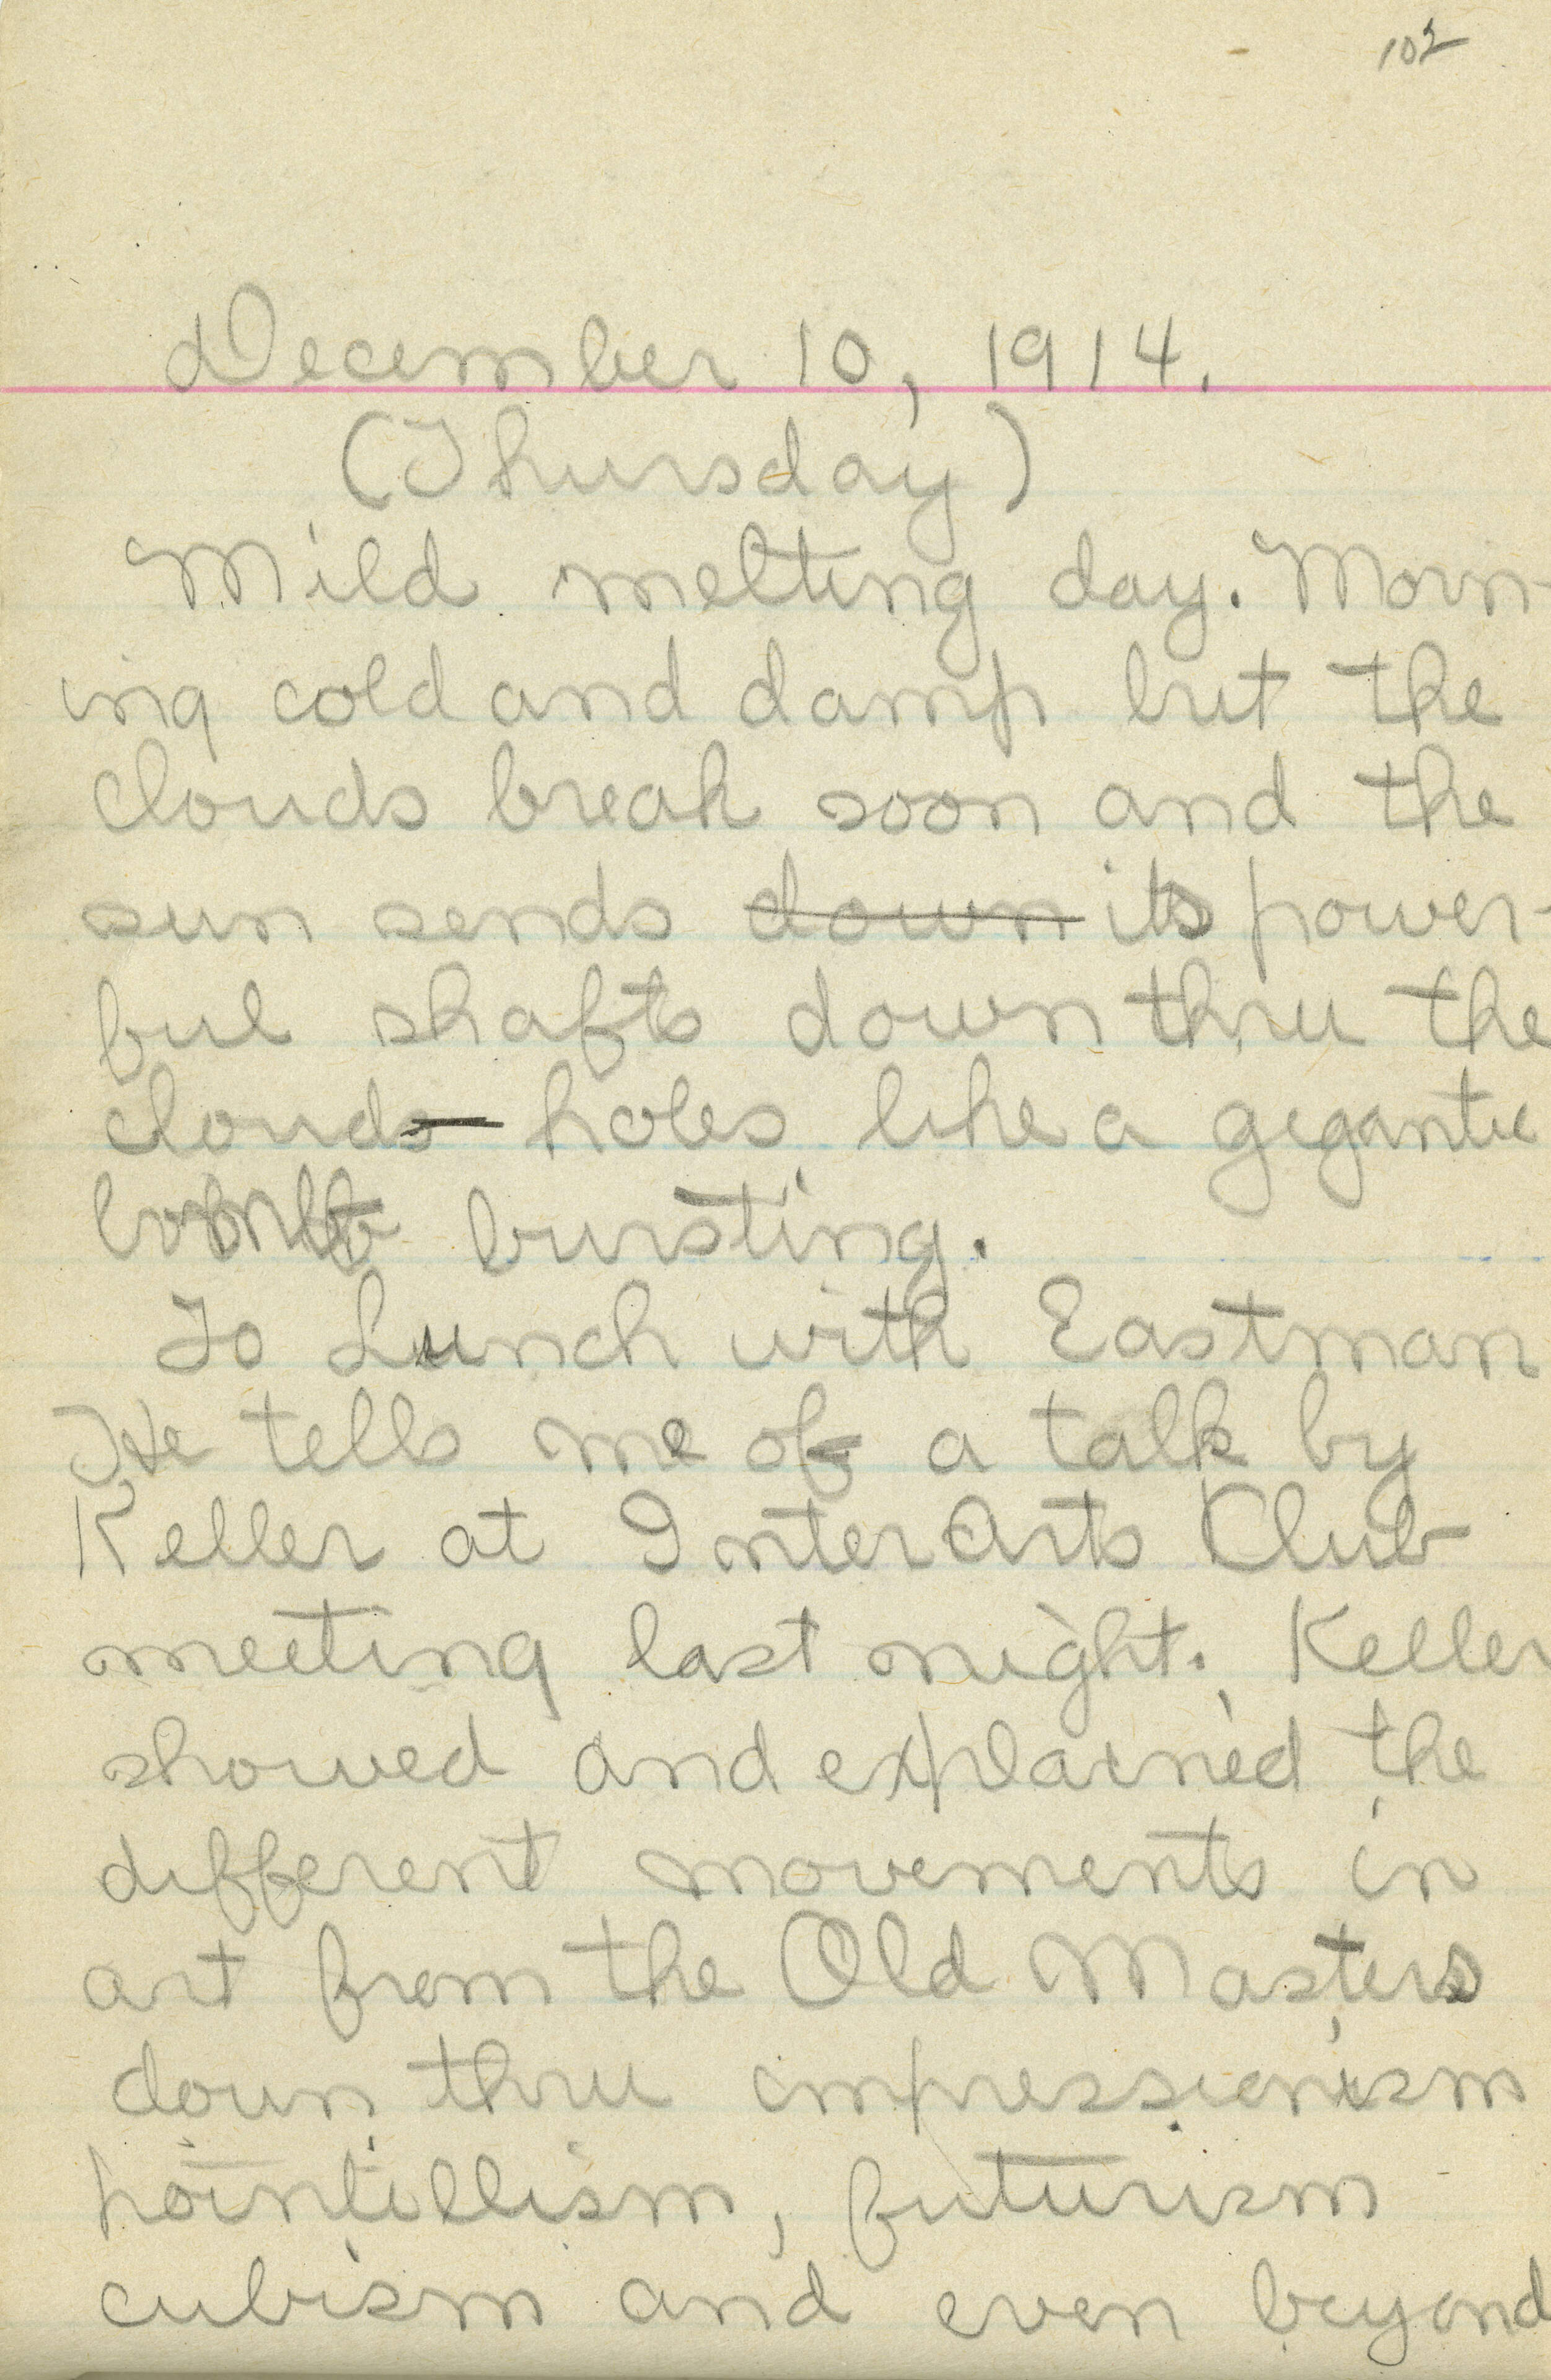 102
December 10, 1914.
(Thursday)
Mild melting day. Morn-
ing cold and damp but the
clouds break soon and the
sun sends down its power-
ful shafts down thru the
clouds holes like a gigantic
bomb bursting.
To Lunch with Eastman
He tells me of a talk by
Keller at InterArts Club
meeting last night. Keller
showed and explained the
different movements in
art from the Old Masters
down thru impressionism
pointillism, futurism
cubism and even beyond